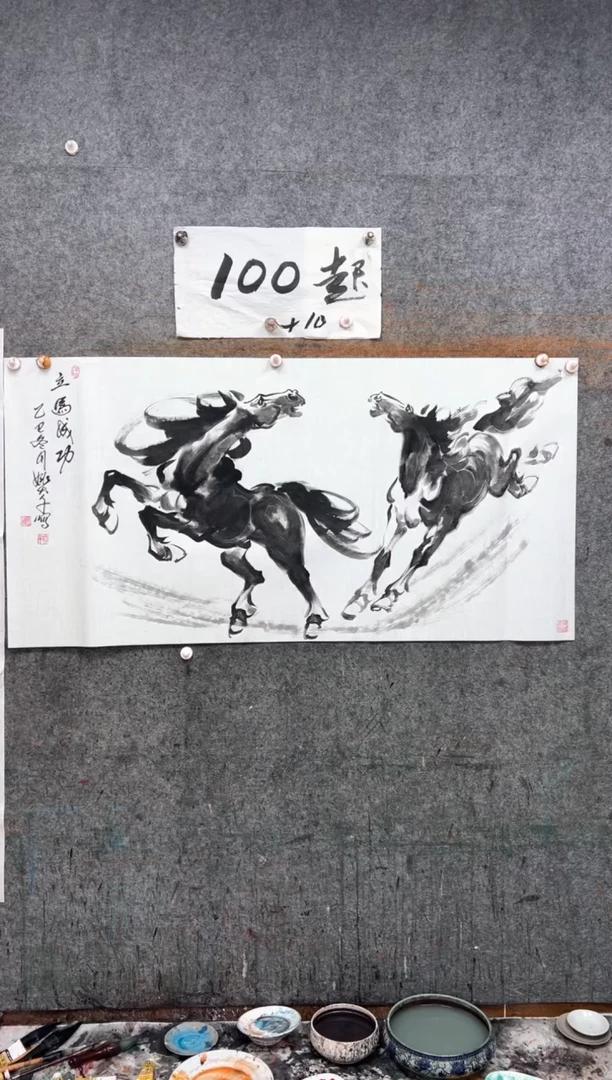 100起
+10
立馬成功
乙巳冬月